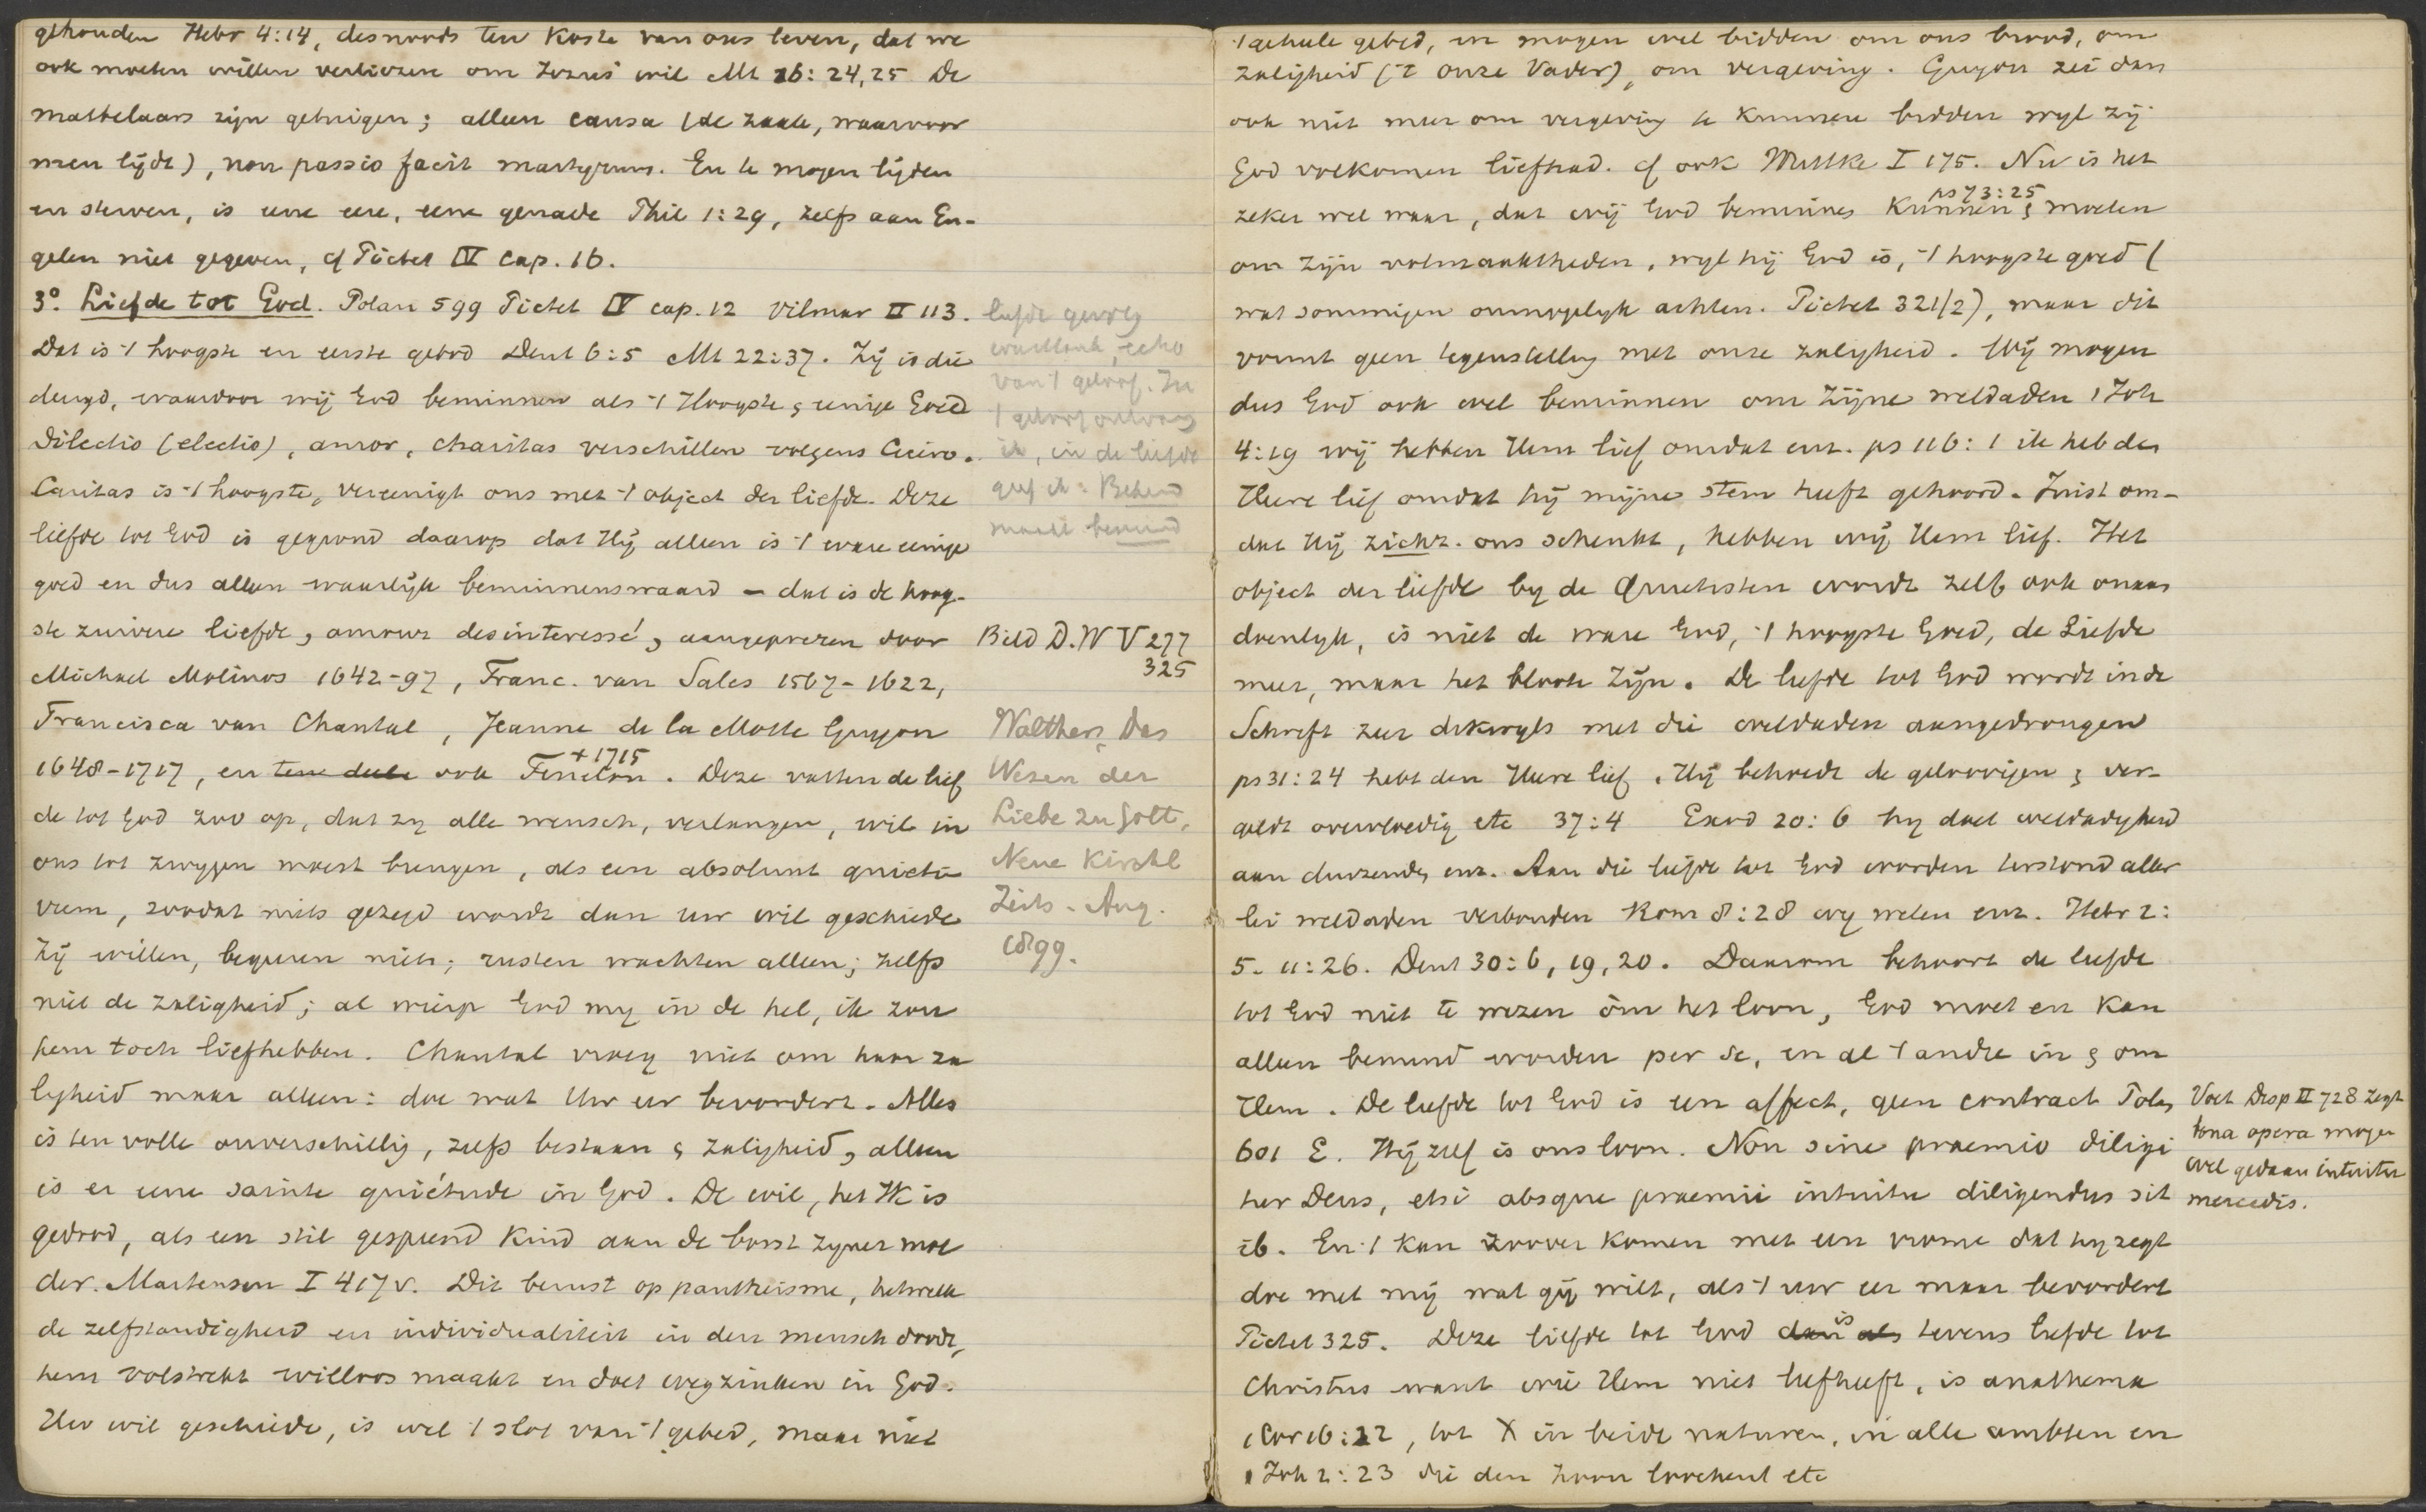 gehouden Hebr 4:14, desnoods ten koste van ons leven, dat we
ook moeten willen verliezen om Jezus' wil Mt 16:24,25 De
martelaars zijn getuigen; alleen causa (de zaak, waarvoor
men lijdt), non passio facit martyrum. En te mogen lijden
en sterven, is eene eere, eene genade Phil 1:29, zelfs aan En-
gelen niet gegeven, cf Pictet IV cap. 16.
3°. Liefde tot God. Polan 599 Pictet IV cap. 12 Vilmar II 113.
Dat is 't hoogste en eerste gebod Deut 6:5 Mt 22:37. Zij is die
deugd, waardoor wij God beminnen als 't Hoogste & eenige Goed
Dilectio (electio), amor, charitas verschillen volgens Cicero.
Caritas is 't hoogste, vereenigt ons met 't object der liefde. Deze
liefde tot God is gegrond daarop dat Hij alleen is 't ware eenige
goed en dus alleen waarlijk beminnenswaard – dat is de hoog-
ste zuivere liefde, amour desinteressé, aangeprezen door
Michael Molinos 1642-97, Franc. van Sales 1567-1622,
Francisca van Chantal, Jeanne de la Motte Guyon
1648-1717, en ook Fenelon +1715. Deze vatten de lief
de tot God zoo op, dat zy alle wensch, verlangen, wil in
ons tot zwygen moest brengen, als een absoluut quietis
vum, zoodat niets gezegd wordt dan uw wil geschiede
Zij willen, begeeren niets; rusten wachten alleen; zelfs
niet de zaligheid; al wierp God my in de hel, ik zou
hem toch liefhebben. Chantal vroeg niet om haar za
lygheid maar alleen: doe wat Uw eer bevordert. Alles
is ten volle onverschillig, zelfs bestaan & zaligheid, alleen
is er eene sainte quiétude in God. De wil, het Ik is
gedood, als een stil gespeend kind aan de borst zyner moe
der. Martensen I 417 v. Dit berust op pantheisme, hetwelk
de zelfstandigheid en individualiteit in den mensch doodt,
hem volstrekt willoos maakt en doet wegzinken in God.
Uw wil geschiede, is wel 't slot van 't gebed, maar niet
liefde gevolg
weerklank, echo
van 't geloof. In
't geloof ontvang
ik, in de liefde
geef ik: Bemind
maakt beminnend
Bild D.W V 277
325
Walther, Das
Wesen der
Liebe zu Gott,
Neue Kirchl
Zeits. Aug.
1899.
't geheele gebed, en mogen wel bidden om ons brood, om
zaligheid ('t Onze Vader), om vergeving. Guyon zei dan
ook niet meer om vergeving te kunnen bidden wyl zij
God volkomen liefhad. cf ook Wuttke I 175. Nu is het
zeker wel waar, dat wij God beminnen kunnen & moeten ps 73:25
om zijn volmaaktheden, wyl hij God is, 't hoogste goed (
wat sommigen onmogelyk achten. Pictet 321/2), maar dit
vormt geen tegenstelling met onze zaligheid. Wij mogen
dus God ook wel beminnen om Zijne weldaden 1 Joh
4:19 wij hebben Hem lief omdat enz. ps 116:1 ik heb den
Heere lief omdat hij mijne stem heeft gehoord. Juist om-
dat Hij zichz. ons schenkt, hebben wij Hem lief. Het
object der liefde by de Quietisten wordt zelf ook onaan
doenlyk, is niet de ware God, 't hoogste Goed, de Liefde
meer, maar het bloote Zijn. De liefde tot God wordt in de
Schrift zeer dikwyls met die weldaden aangedrongen
ps 31:24 hebt den Heere lief, Hij behoedt de geloovigen & ver-
geldt overvloedig etc 37:4 Exod 20:6 hy doet weldadigheid
aan duizenden, enz. Aan die liefde tot God worden terstond aller
lei weldaden verbonden Rom 8:28 wy weten enz. Hebr 2:
5. 11:26. Deut 30:6, 19, 20. Daarom behoort de liefde
tot God niet te wezen om het loon, God moet en kan
alleen bemind worden per se, en al 't andre in & om
Hem. De liefde tot God is een affect, geen contract Polan
601 E. Hij zelf is ons loon. Non sine praemio diligi
tur Deus, etsi absque praemii intuitu diligendus sit
ib. En 't kan zoover komen met een vrome dat hy zegt
doe met mij wat gij wilt, als 't uw eer maar bevordert
Pictet 325. Deze liefde tot God is tevens liefde tot
Christus want wie Hem niet liefheeft, is anathema
1 Cor 16:22, tot X in beide naturen, in alle ambten en
1 Joh 2:23 die den Zoon loochent etc
Voet Disp II 728 zegt
bona opera mogen
wel gedaan intuitu
mercedis.